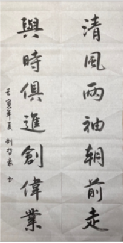 清風兩袖朝前走
與時俱進創偉業
壬寅年夏